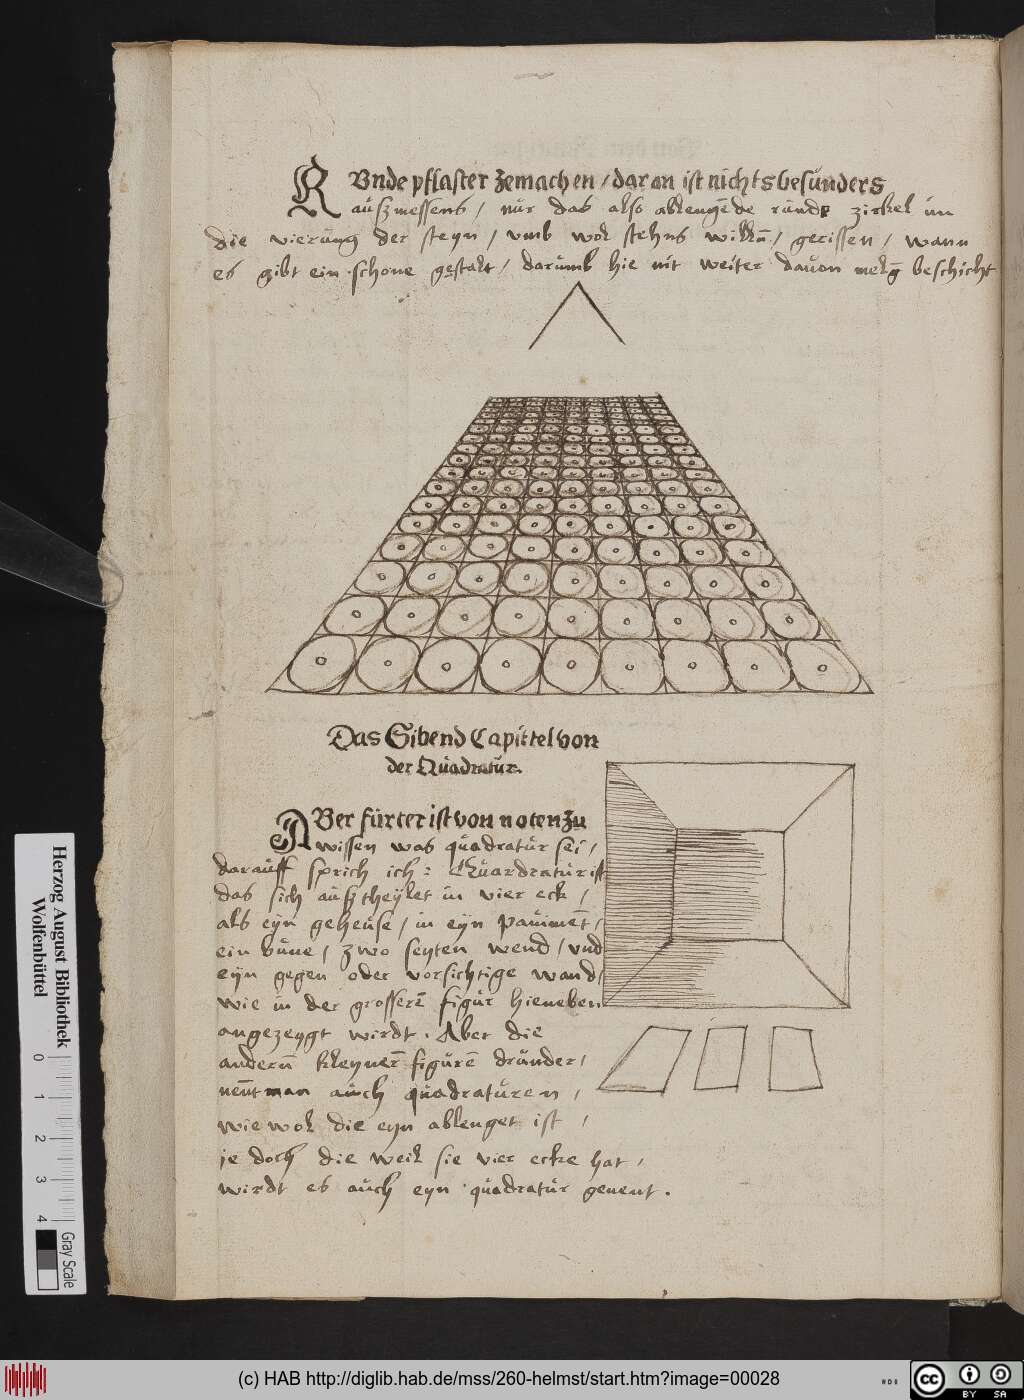 RVnde pflaster zemachen / daran ist nichts besünders
aüszmessens / nür das also ablengede ründe zirkel im
die vierüng der steyn / vmb wol stehns willn̄ / gerissen / wann
es gibt ein schone gestalt / darümb hie nit weiter dauon beschicht
Das Sibend Capittel von
der Qüadratür.
ABer fürter ist von noten zu
wissen was qüadratür sei /
daraüff sprich ich : Qüardratür ist
das sich aüsztheylet in vier eck /
als eyn geheüse / in eyn pauimēt /
ein büne / zwo seyten wend / vnd
eyn gegen oder vorsichtige wand /
wie in der grossern̄ figür hieneben
angezeygt wirdt . Aber die
andern̄ kleynern̄ figürē dründer /
nen̄t man aüch qüadratüren /
wie wol die eyn ablenget ist /
je doch die weil sie vier ecke hat /
wirdt es aüch eyn qüadratür genent .
Herzog August Bibliothek
Wolfenbüttel
0 1 2 3 4
Gray Scale
(c) HAB http://diglib.hab.de/mss/260-helmst/start.htm?image=00028
cc BY SA